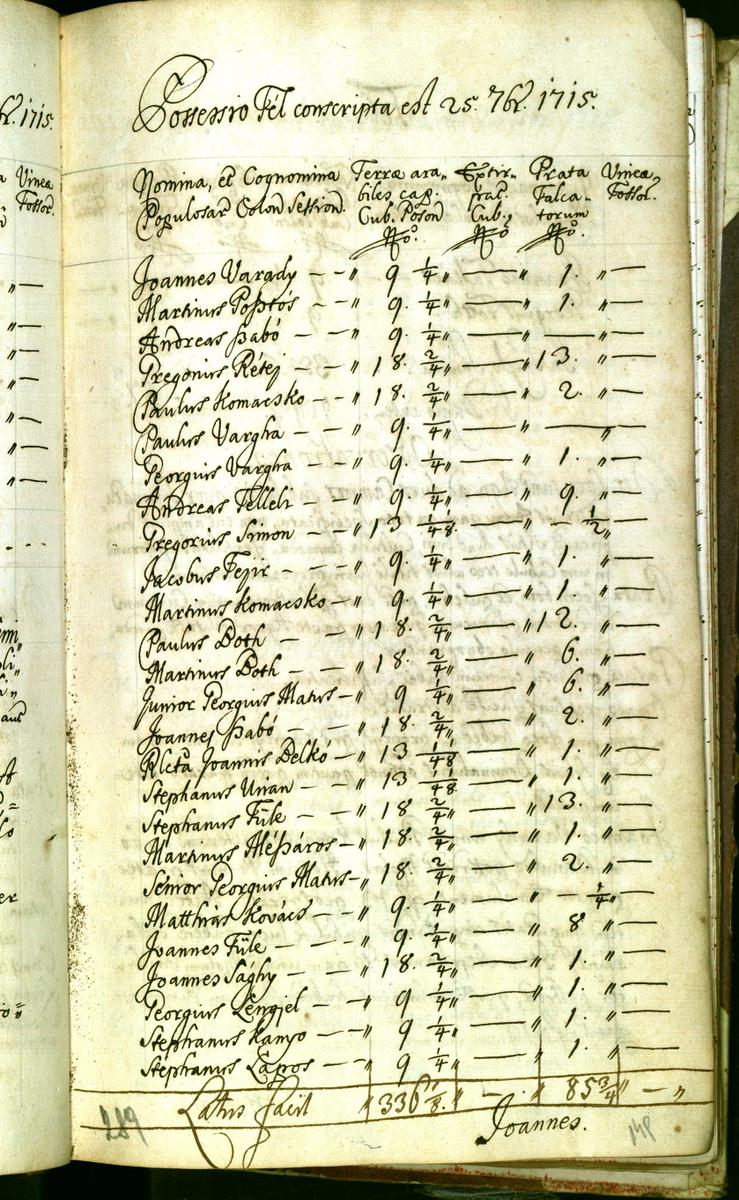 Possessio Fél conscripta est 25. 7br. 1715.
Nomina, et Cognomina Terræ ara„ Extir„ Prata Vinea„
Populosar Colon Session. biles cap. pat. Falca„ Fossor.
Cub. Poson Cub„ torum
Nro. Nro Nro.
Joannes Varady — —„ 9 1/4„ ——„ 1. „—
Martinus Posztós — —„ 9. 1/4„ ——„ 1. „—
Andreas Szabó — —„ 9. 1/4„ ——„ —— „—
Gregorius Rétej —„ 18. 2/4„ ——„ 13. „—
Paulus Komacsko —„ 18. 2/4„ ——„ 2. „—
Paulus Vargha —„ 9. 1/4„ ——„ —— „—
Georgius Vargha —„ 9. 1/4„ ——„ 1. „—
Andreas Telleki —„ 9. 1/4„ ——„ 9. „—
Gregorius Simon —„ 13 1/4 1/8. ——„ — 1/2„
Jacobus Fejir —„ 9. 1/4„ ——„ 1. „—
Martinus Komacsko —„ 9. 1/4„ ——„ 1. „—
Paulus Both — —„ 18. 2/4„ ——„ 12. „—
Martinus Both —„ 18. 2/4„ ——„ 6. „—
Junior Georgius Matus —„ 9 1/4„ ——„ 6. „—
Joannes Szabó — —„ 18. 2/4„ ——„ 2. „—
Rlcta Joannis Delkó —„ 13 1/4 1/8 ——„ 1. „—
Stephanus Urian —„ 13 1/4 1/8. ——„ 1. „—
Stephanus Füle —„ 18 2/4„ ——„ 13. „—
Martinus Mészáros —„ 18. 2/4„ ——„ 1. „—
Senior Georgius Matus —„ 18. 2/4„ ——„ 2. „—
Matthias Kovács — —„ 9. 1/4„ ——„ — 1/4„
Joannes Füle — — —„ 9. 1/4„ ——„ 8 „—
Joannes Sághy — —„ 18. 2/4„ ——„ 1. „—
Georgius Lengjel — —„ 9 1/4„ ——„ 1. „—
Stephanus Kanyo — —„ 9 1/4„ ——„ 1. „—
Stephanus Lapos — —„ 9 1/4„ ——„ 1. „—
Latus facit „336 1/8. „ — „ 85 3/4„ — „
Joannes.
289